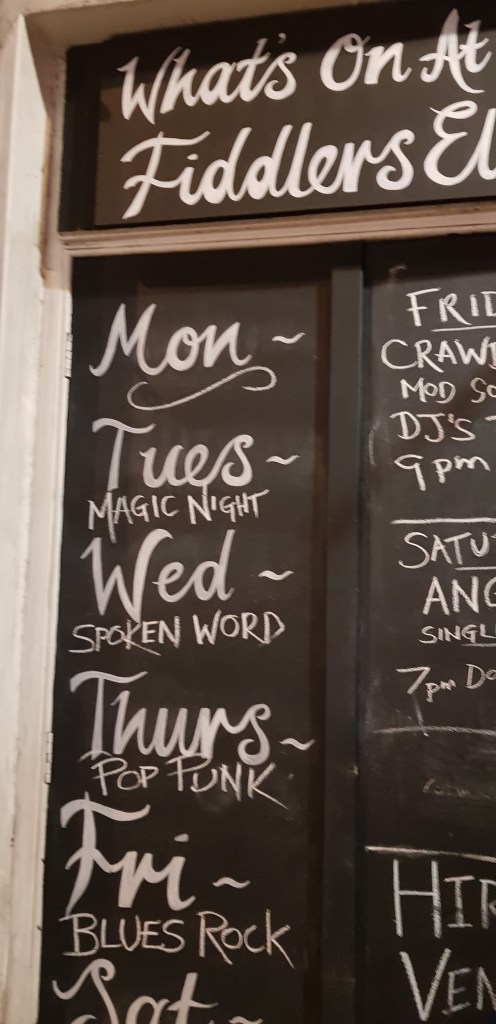 What's On At
Fiddlers El
Mon ~
Tues ~
MAGIC NIGHT
Wed ~
SPOKEN WORD
Thurs ~
POP PUNK
Fri ~
BLUES ROCK
Sat ~
FRID
CRAWD
MOD SO
DJ'S
9pm
SATU
ANG
SINGL
7pm Do
HIR
VEN